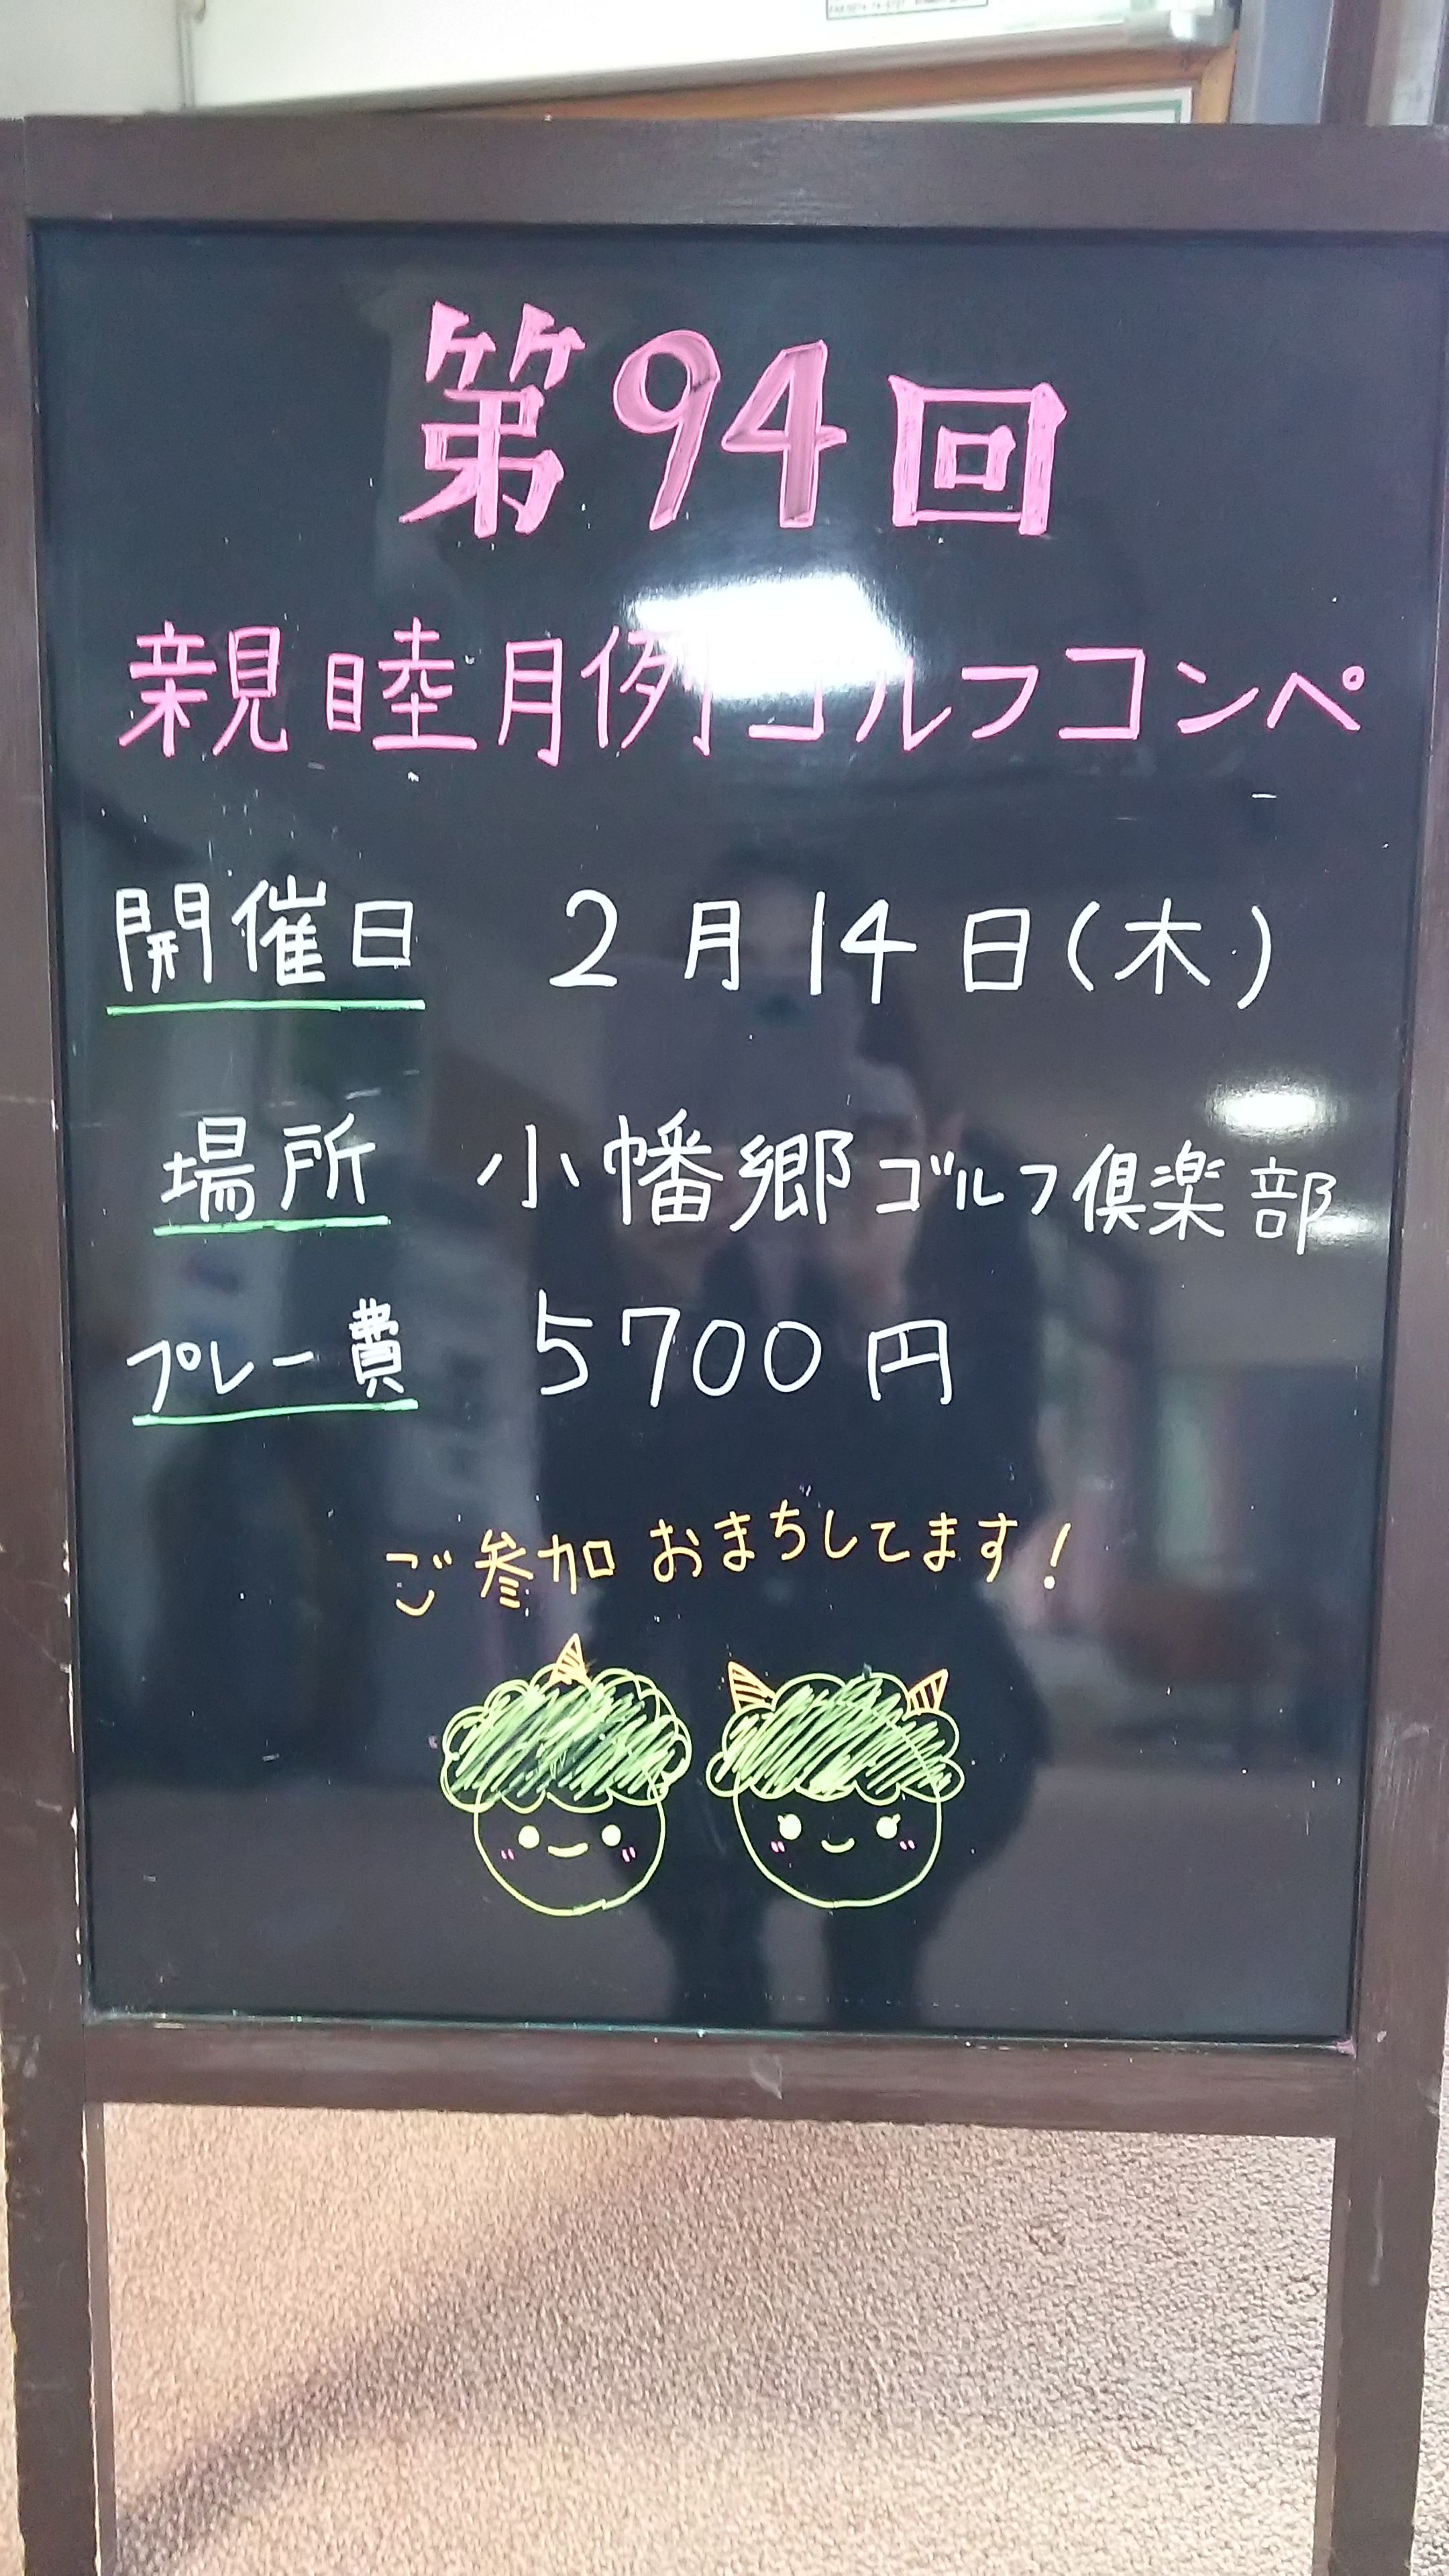 第94回
親睦月例ゴルフコンペ
開催日 2月14日(木)
場所 小幡郷ゴルフ倶楽部
プレー費 5700円
ご参加おまちしてます!